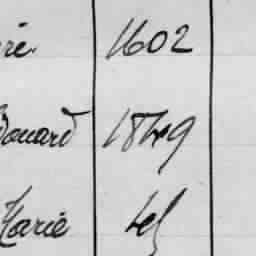 ré. 1602
douard 1849
Marie